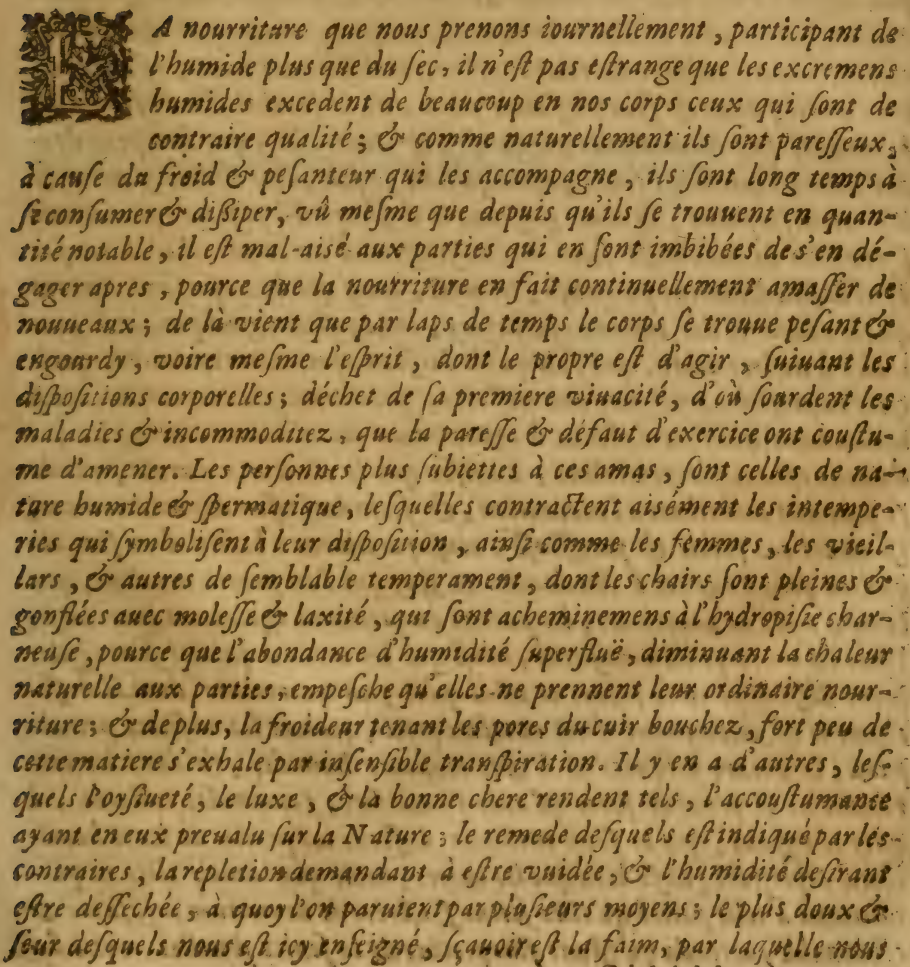 LA nourriture que nous prenons iournellement, participant de
l'humide plus que du sec, il n'est pas estrange que les excremens
humides excedent de beaucoup en nos corps ceux qui sont de
contraire qualité; & comme naturellement ils sont paresseux,
à cause du froid & pesanteur qui les accompagne, ils sont long temps à
se consumer & dißiper, vû mesme que depuis qu'ils se trouuent en quan-
tité notable, il est mal-aisé aux parties qui en sont imbibées de s'en dé-
gager apres, pource que la nourriture en fait continuellement amasser de
nouueaux; de là vient que par laps de temps le corps se trouue pesant &
engourdy, voire mesme l'esprit, dont le propre est d'agir, suiuant les
dispositions corporelles; déchet de sa premiere viuacité, d'où sourdent les
maladies & incommoditez, que la paresse & défaut d'exercice ont coustu-
me d'amener. Les personnes plus subiettes à ces amas, sont celles de na-
ture humide & spermatique, lesquelles contractent aisément les intempe-
ries qui symbolisent à leur disposition, ainsi comme les femmes, les vieil-
lars, & autres de semblable temperament, dont les chairs sont pleines &
gonflées auec molesse & laxité, qui sont acheminemens à l'hydropisie char-
neuse, pource que l'abondance d'humidité superfluë, diminuant la chaleur
naturelle aux parties, empesche qu'elles ne prennent leur ordinaire nour-
riture; & de plus, la froideur tenant les pores du cuir bouchez, fort peu de
cette matiere s'exhale par insensible transpiration. Il y en a d'autres, les-
quels l'oysiueté, le luxe, & la bonne chere rendent tels, l'accoustumance
ayant en eux preualu sur la Nature; le remede desquels est indiqué par les
contraires, la repletion demandant à estre vuidée, & l'humidité desirant
estre dessechée, à quoy l'on paruient par plusieurs moyens; le plus doux &
seur desquels nous est icy enseigné, sçauoir est la faim, par laquelle nous